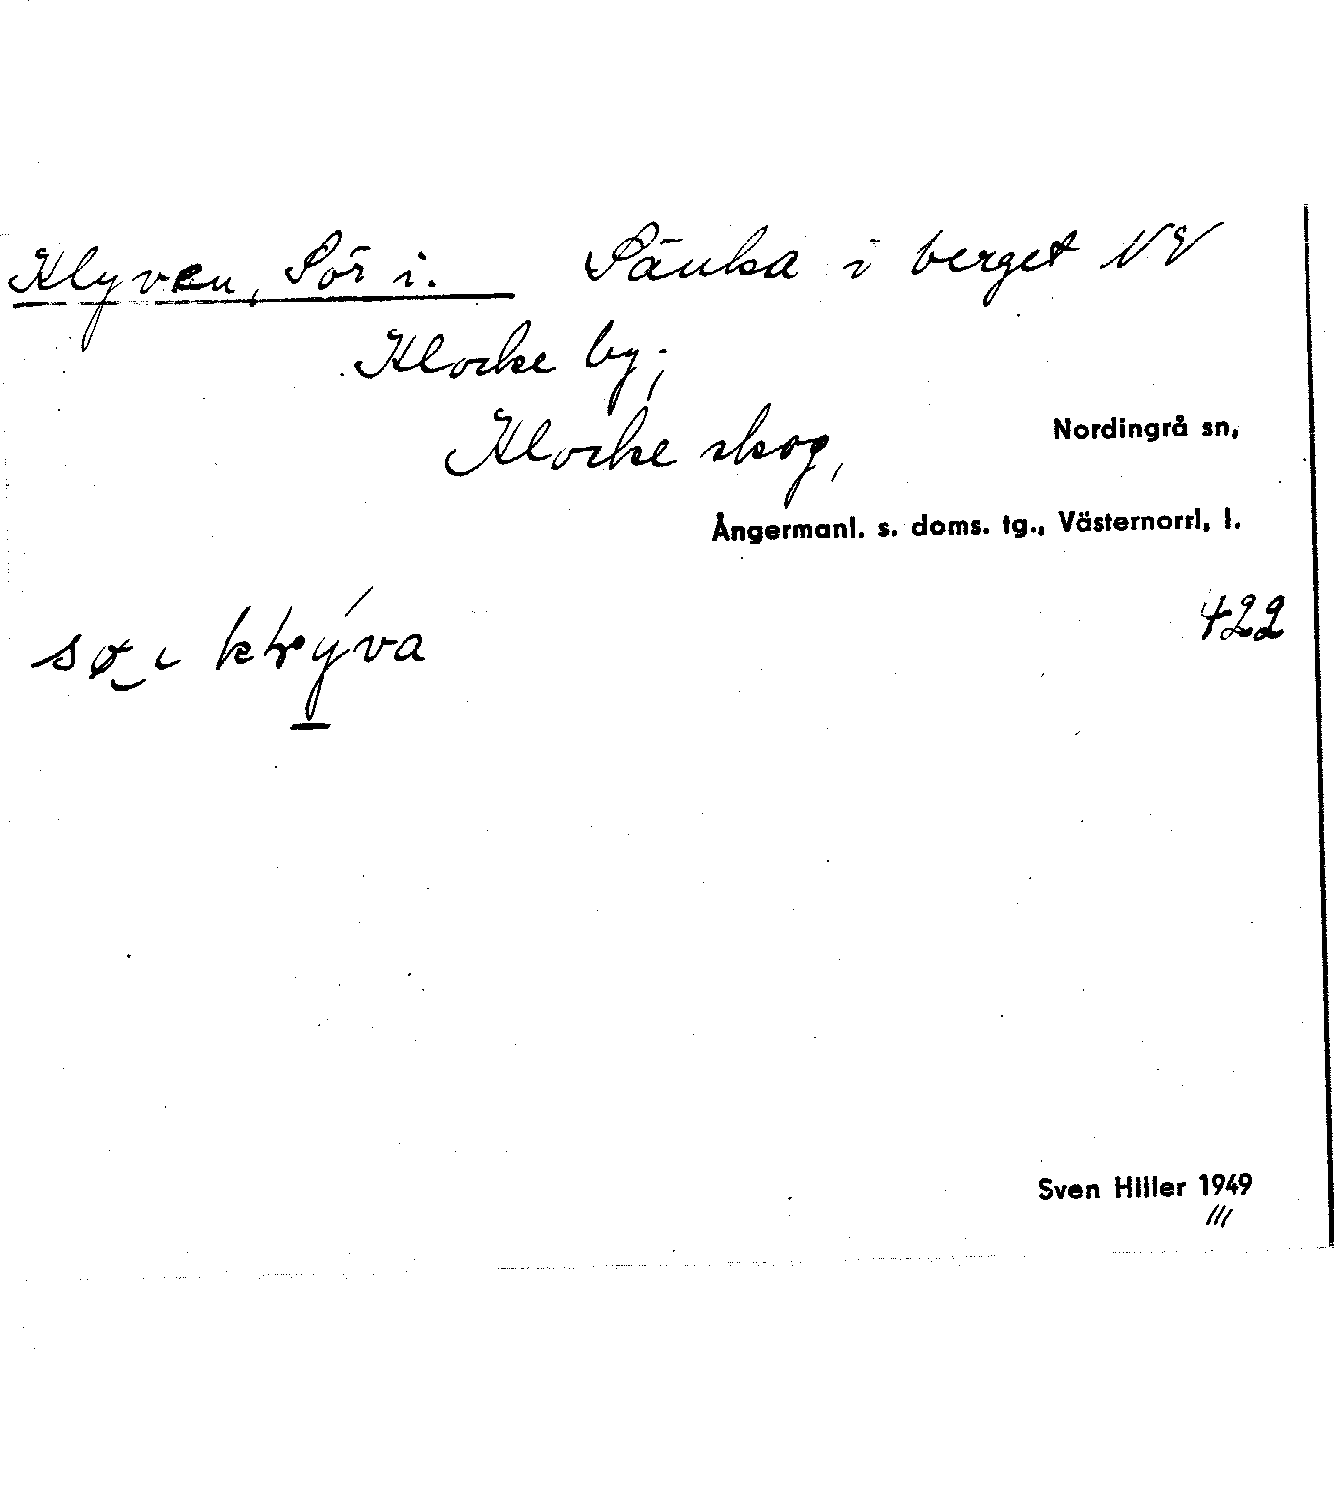 Klyven, Sör i. Sänka i berget NV
Klocke by;
Klocke skog,
Nordingrå sn,
Ångermanl. s. doms. tg., Västernorrl. l.
422
Sven Hiller 1949